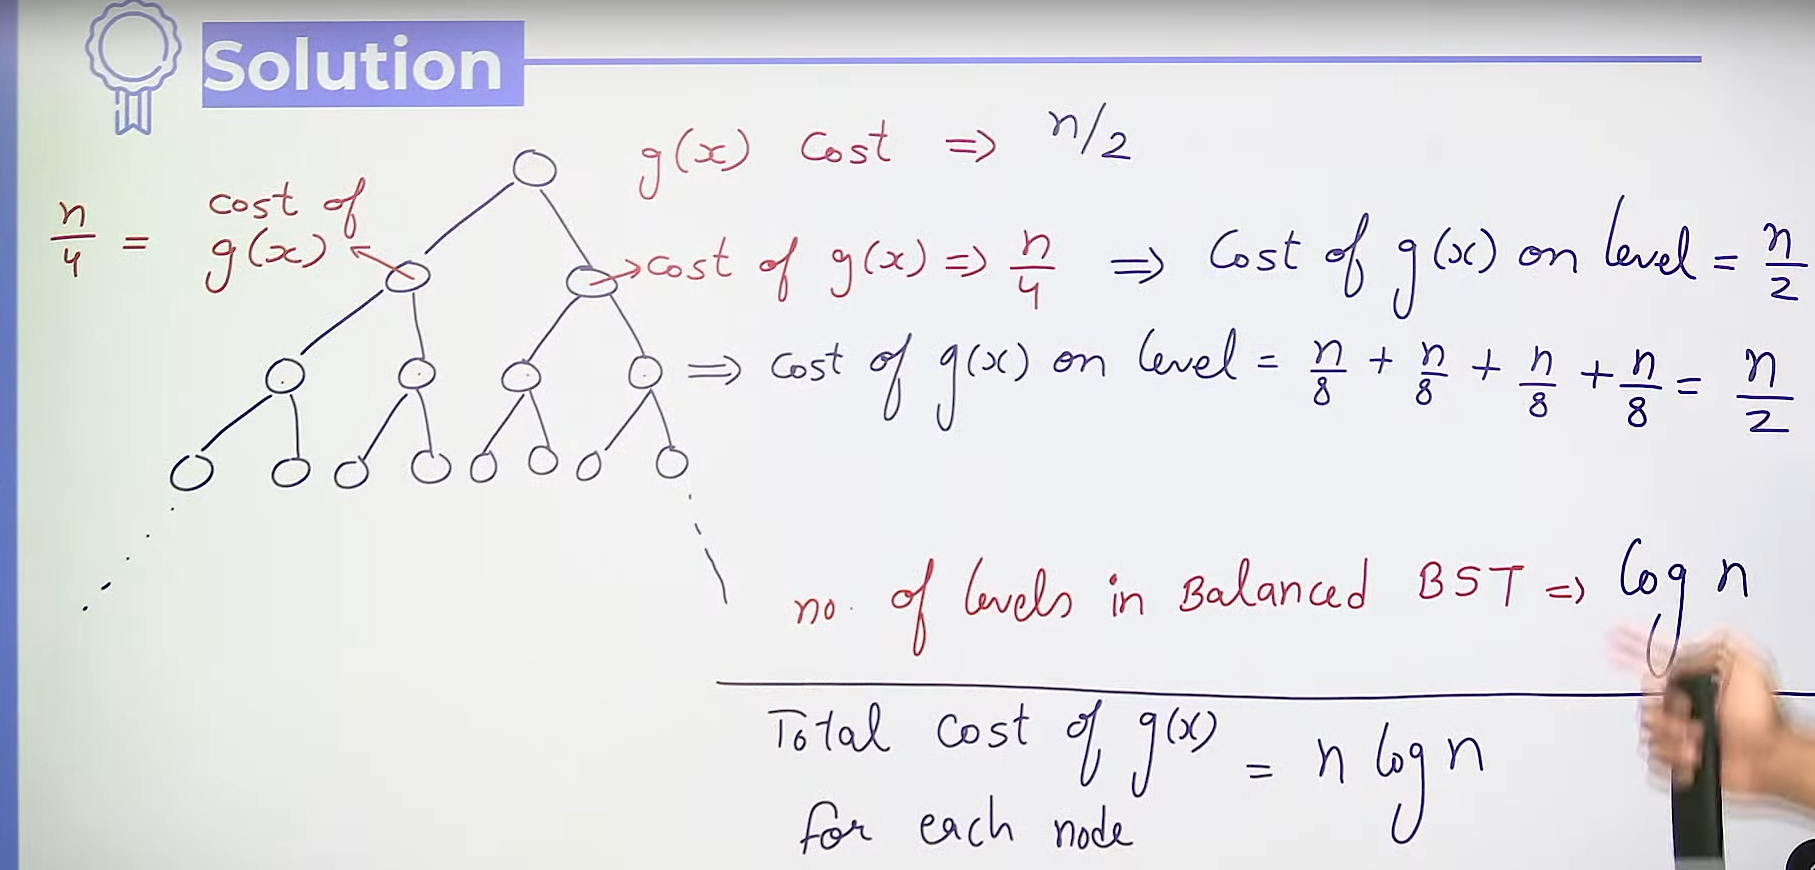 Solution
g(x) cost => n/2
n/4 = cost of g(x)
cost of g(x) => n/4 => Cost of g(x) on level = n/2
=> cost of g(x) on level = n/8 + n/8 + n/8 + n/8 = n/2
no. of levels in Balanced BST => log n
Total cost of g(x) = n log n
for each node